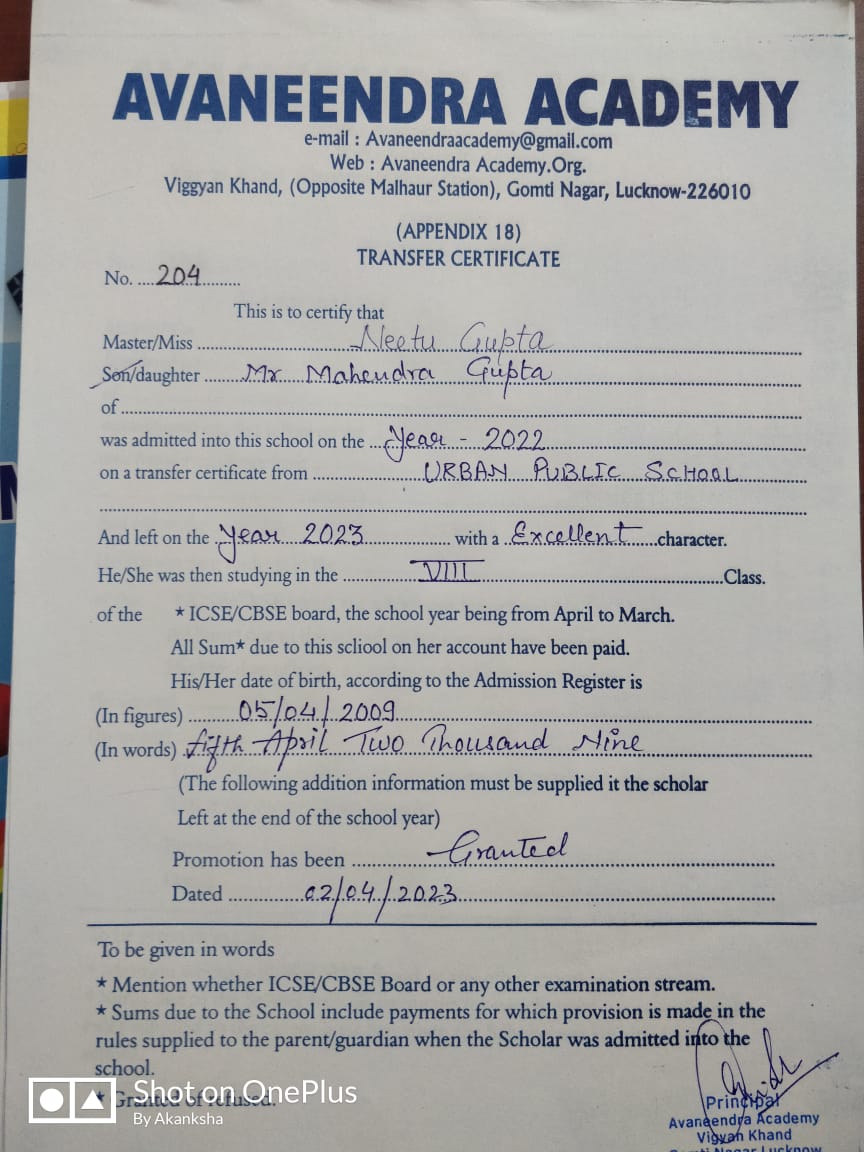 AVANEENDRA ACADEMY
e-mail : Avaneendraacademy@gmail.com
Web : Avaneendra Academy.Org.
Viggyan Khand, (Opposite Malhaur Station), Gomti Nagar, Lucknow-226010
(APPENDIX 18)
TRANSFER CERTIFICATE
No. ....204..........
This is to certify that
Master/Miss ........ Neetu Gupta ........
Son/daughter ...... Mr Mahendra Gupta ........
of ........
was admitted into this school on the ... Year - 2022 ........
on a transfer certificate from ........ URBAN PUBLIC SCHOOL ........
And left on the Year 2023 ........ with a .. Excellent .....character.
He/She was then studying in the ........ VIII ........Class.
of the * ICSE/CBSE board, the school year being from April to March.
All Sum* due to this scliool on her account have been paid.
His/Her date of birth, according to the Admission Register is
(In figures) ........ 05/04/2009 ........
(In words) fifth April Two Thousand Nine ........
(The following addition information must be supplied it the scholar
Left at the end of the school year)
Promotion has been ........ Granted ........
Dated ........ 02/04/2023 ........
To be given in words
* Mention whether ICSE/CBSE Board or any other examination stream.
* Sums due to the School include payments for which provision is made in the
rules supplied to the parent/guardian when the Scholar was admitted into the
school.
* Granted of refused.
Shot on OnePlus
By Akanksha
Principal
Avaneendra Academy
Vigyan Khand
Gomti Nagar Lucknow